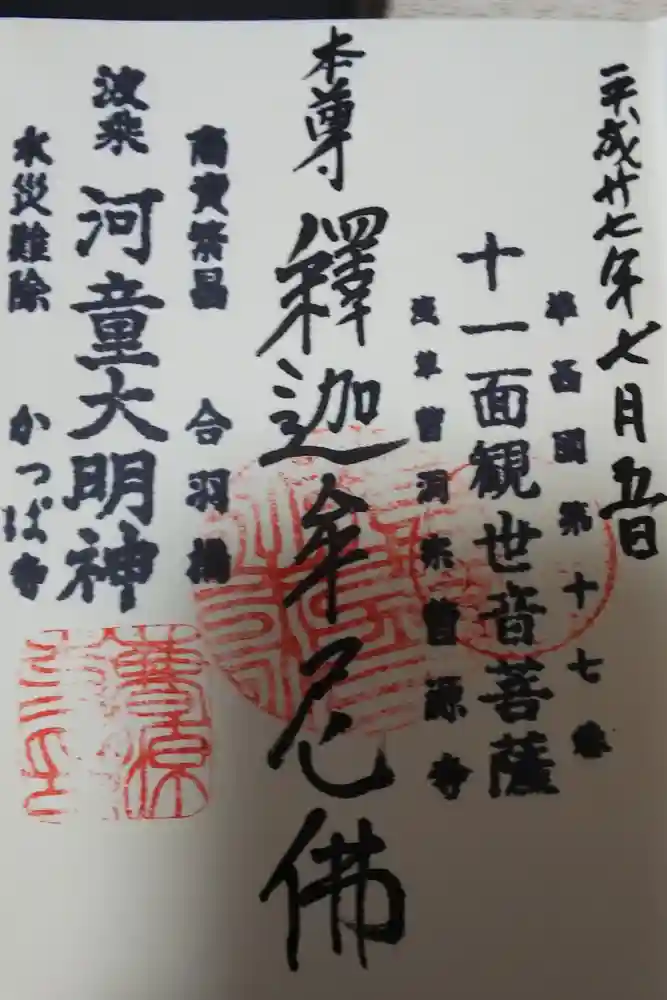 平成廿七年七月五日
準西國第十七番
十一面観世音菩薩
浅草曹洞宗曹源寺
本尊 釋迦牟尼佛
商賣繁昌 合羽橋
波乗 河童大明神
水災難除 かっぱ寺
曹源